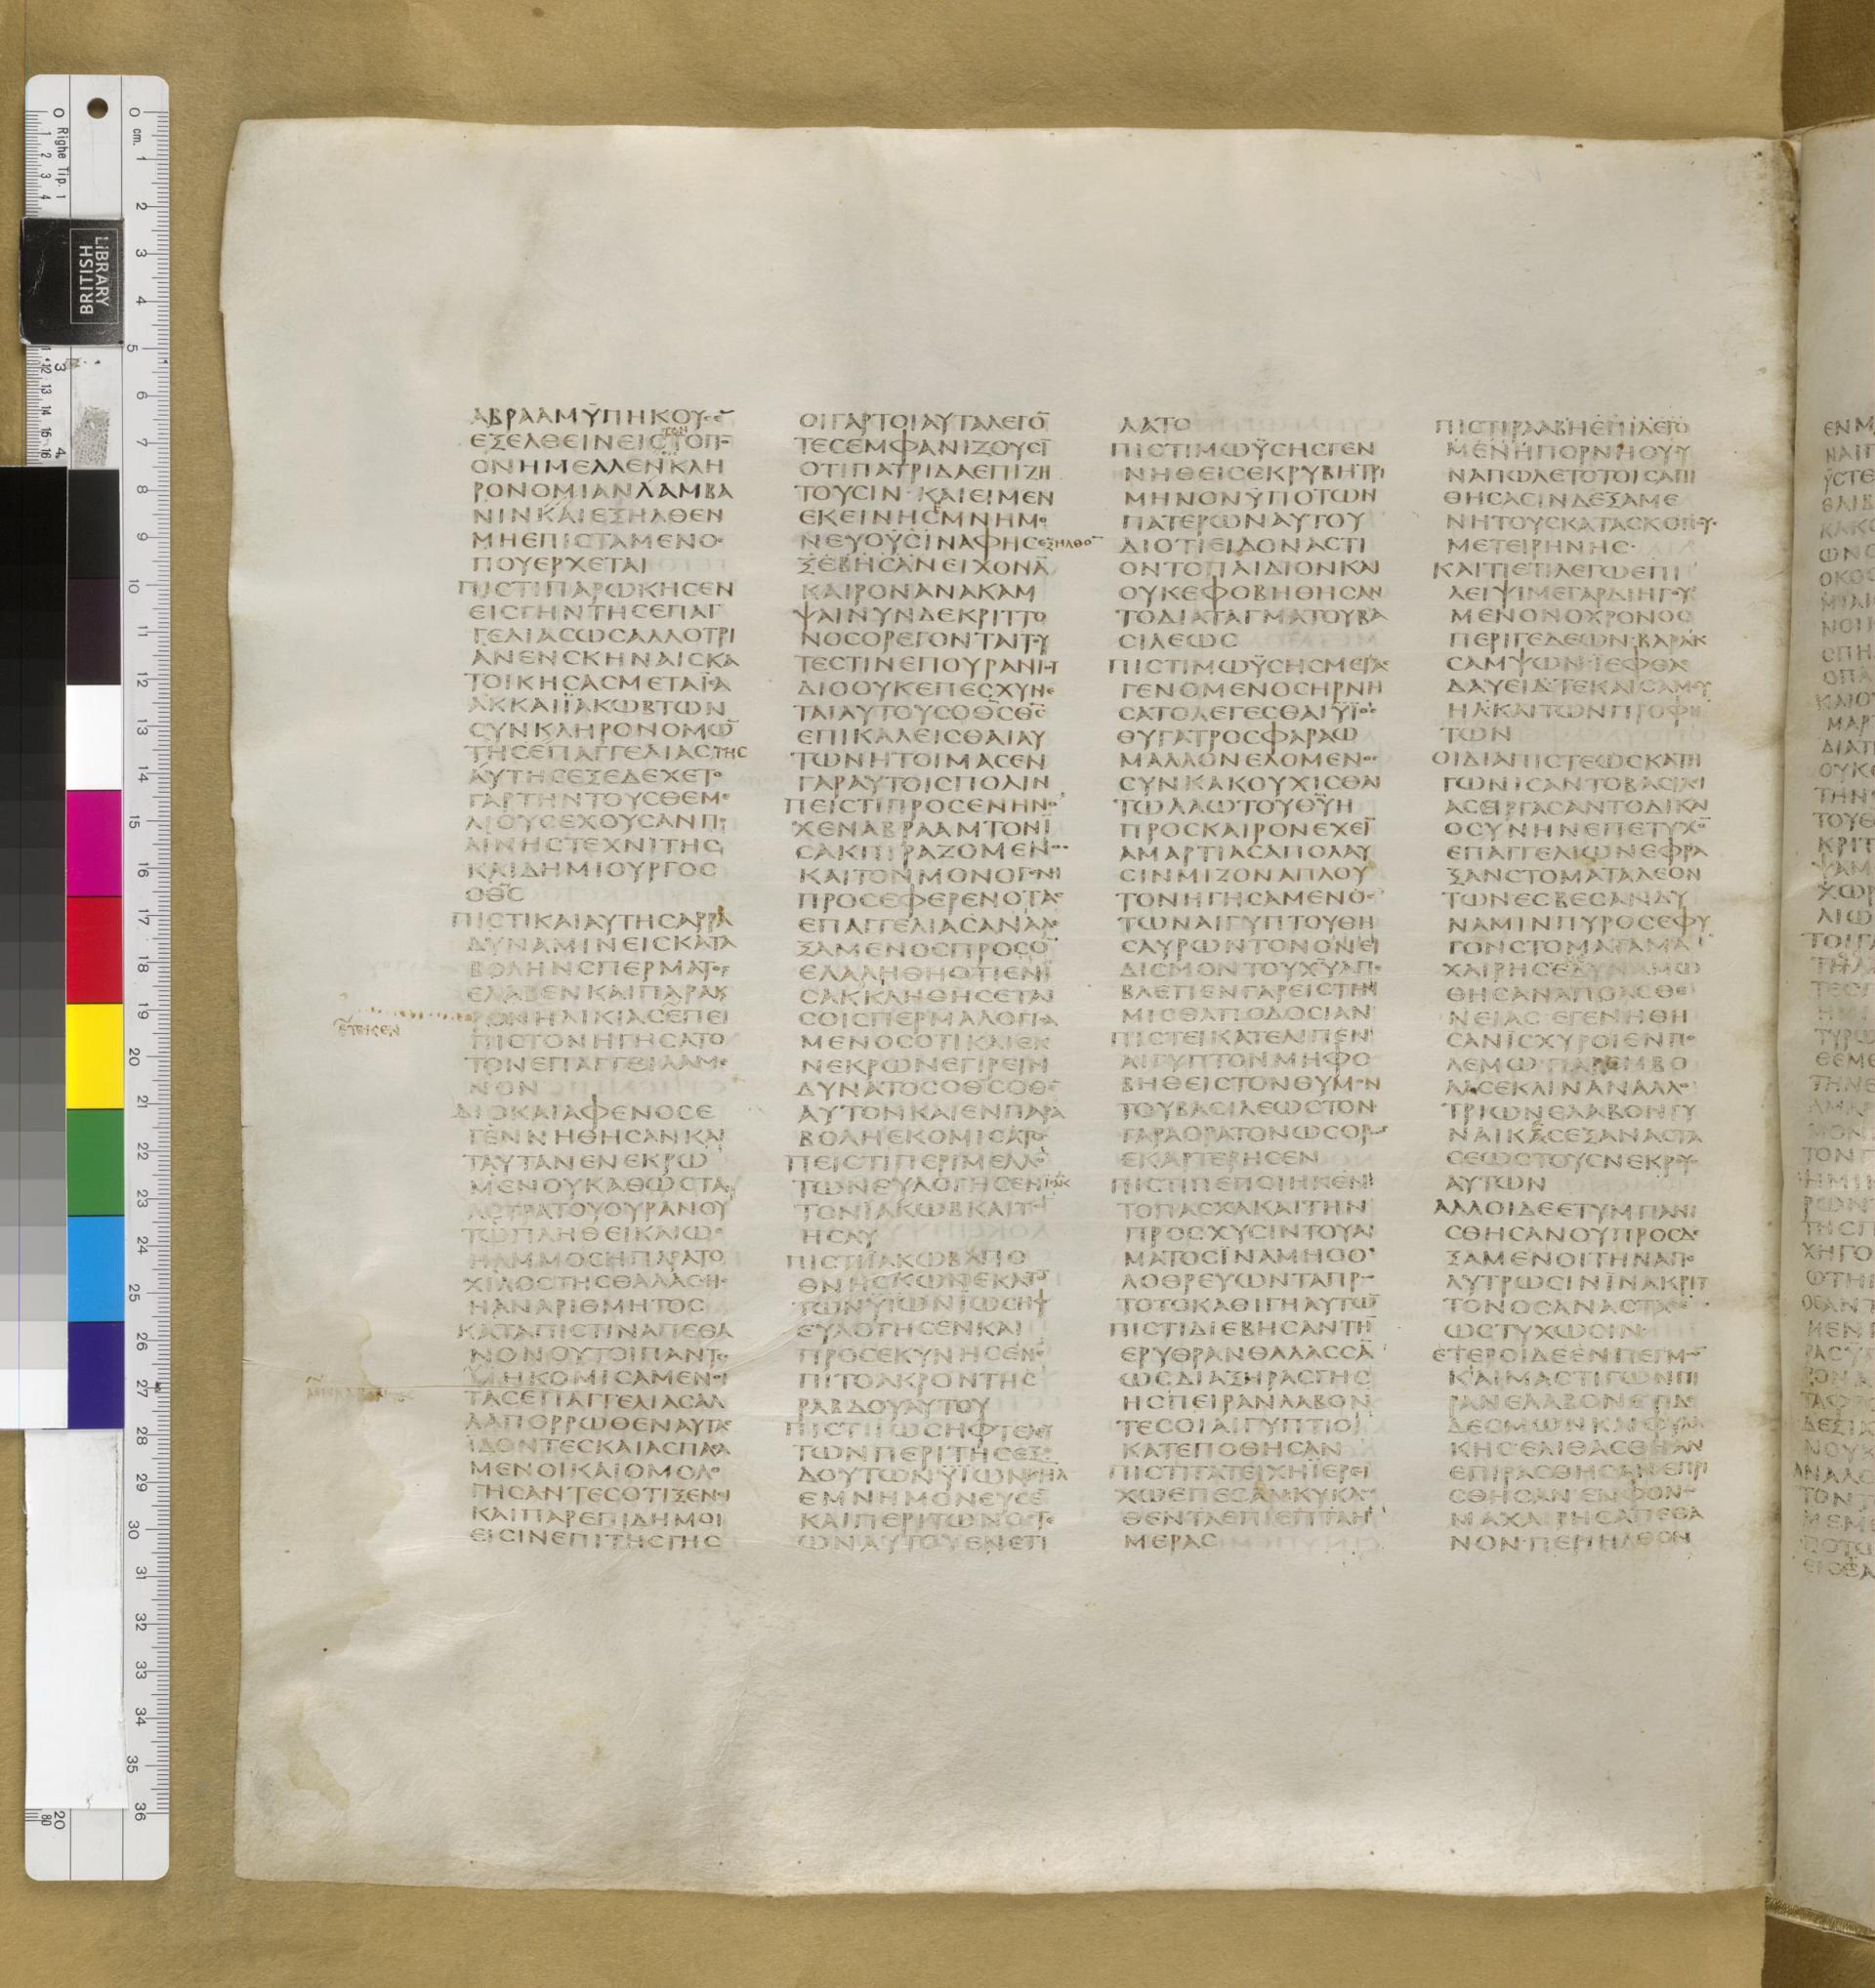 ΑΒΡΑΑΜΫΠΗΚΟΥϹΕ̅
ΕΞΕΛΘΕΙΝΕΙϹΤΟΠΟ̅
ΟΝΗΜΕΛΛΕΝΚΛΗ
ΡΟΝΟΜΙΑΝΛΑΜΒΑ
ΝΙΝΚΑΙΕΞΗΛΘΕΝ
ΜΗΕΠΙϹΤΑΜΕΝΟϹ
ΠΟΥΕΡΧΕΤΑΙ
ΠΙϹΤΙΠΑΡΩΚΗϹΕΝ
ΕΙϹΓΗΝΤΗϹΕΠΑΓ
ΓΕΛΙΑϹΩϹΑΛΛΟΤΡΙ
ΑΝΕΝϹΚΗΝΑΙϹΚΑ
ΤΟΙΚΗϹΑϹΜΕΤΑΪϹΑ
ΑΚΚΑΙΪΑΚΩΒΤΩΝ
ϹΥΝΚΛΗΡΟΝΟΜΩ̅
ΤΗϹΕΠΑΓΓΕΛΙΑϹΤΗϹ
ΑΥΤΗϹΕΞΕΔΕΧΕΤΟ
ΓΑΡΤΗΝΤΟΥϹΘΕΜΕ
ΛΙΟΥϹΕΧΟΥϹΑΝΠΟ
ΛΙΝΗϹΤΕΧΝΙΤΗϹ
ΚΑΙΔΗΜΙΟΥΡΓΟϹ
ΟΘ̅Ϲ̅
ΠΙϹΤΙΚΑΙΑΥΤΗϹΑΡΡΑ
ΔΥΝΑΜΙΝΕΙϹΚΑΤΑ
ΒΟΛΗΝϹΠΕΡΜΑΤΟϹ
ΕΛΑΒΕΝΚΑΙΠΑΡΑΚΑΙ
ΡΟΝΗΛΙΚΙΑϹΕΠΕΙ
ΕΤΕΚΕΝ
ΠΙϹΤΟΝΗΓΗϹΑΤΟ
ΤΟΝΕΠΑΓΓΕΙΛΑΜΕ
ΝΟΝ
ΔΙΟΚΑΙΑΦΕΝΟϹΕ
ΓΕΝΝΗΘΗϹΑΝΚΑΙ
ΤΑΥΤΑΝΕΝΕΚΡΩ
ΜΕΝΟΥΚΑΘΩϹΤΑ
ΑϹΤΡΑΤΟΥΟΥΡΑΝΟΥ
ΤΩΠΛΗΘΕΙΚΑΙΩϹ
ΗΑΜΜΟϹΗΠΑΡΑΤΟ
ΧΙΛΟϹΤΗϹΘΑΛΑϹϹΗϹ
ΗΑΝΑΡΙΘΜΗΤΟϹ
ΚΑΤΑΠΙϹΤΙΝΑΠΕΘΑ
ΝΟΝΟΥΤΟΙΠΑΝΤΕϹ
ΜΗΚΟΜΙϹΑΜΕΝΟΙ
ΤΑϹΕΠΑΓΓΕΛΙΑϹΑΛ
ΛΑΠΟΡΡΩΘΕΝΑΥΤΑϹ
ΪΔΟΝΤΕϹΚΑΙΑϹΠΑϹΑ
ΜΕΝΟΙΚΑΙΟΜΟΛΟ
ΓΗϹΑΝΤΕϹΟΤΙΞΕΝΟΙ
ΚΑΙΠΑΡΕΠΙΔΗΜΟΙ
ΕΙϹΙΝΕΠΙΤΗϹΓΗϹ
ΟΙΓΑΡΤΟΙΑΥΤΑΛΕΓΟ̅
ΤΕϹΕΜΦΑΝΙΖΟΥϹΙ̅
ΟΤΙΠΑΤΡΙΔΑΕΠΙΖΗ
ΤΟΥϹΙΝΚΑΙΕΙΜΕΝ
ΕΚΕΙΝΗϹΜΝΗΜΟ
ΝΕΥΟΥϹΙΝΑΦΗϹΕΞΗΛΘΟ̅
ΞΕΒΗϹΑΝΕΙΧΟΝΑ̅
ΚΑΙΡΟΝΑΝΑΚΑΜ
ΨΑΙΝΥΝΔΕΚΡΙΤΤΟ
ΝΟϹΟΡΕΓΟΝΤΑΙΤΟΥ
ΤΕϹΤΙΝΕΠΟΥΡΑΝΙΟΥ
ΔΙΟΟΥΚΕΠΕϹΧΥΝΕ
ΤΑΙΑΥΤΟΥϹΟΘ̅Ϲ̅Θ̅Ϲ̅
ΕΠΙΚΑΛΕΙϹΘΑΙΑΥ
ΤΩΝΗΤΟΙΜΑϹΕΝ
ΓΑΡΑΥΤΟΙϹΠΟΛΙΝ
ΠΕΙϹΤΙΠΡΟϹΕΝΗΝΟ
ΧΕΝΑΒΡΑΑΜΤΟΝΪ
ϹΑΚΠΙΡΑΖΟΜΕΝΟϹ
ΚΑΙΤΟΝΜΟΝΟΓΕΝΗ
ΠΡΟϹΕΦΕΡΕΝΟΤΑϹ
ΕΠΑΓΓΕΛΙΑϹΑΝΑΔΕ
ΞΑΜΕΝΟϹΠΡΟϹΟ̅
ΕΛΑΛΗΘΗΟΤΙΕΝΪ
ϹΑΚΚΛΗΘΗϹΕΤΑΙ
ϹΟΙϹΠΕΡΜΑΛΟΓΙϹΑ
ΜΕΝΟϹΟΤΙΚΑΙΕΚ
ΝΕΚΡΩΝΕΓΙΡΕΙΝ
ΔΥΝΑΤΟϹΟΘ̅Ϲ̅ΟΘΕ̅
ΑΥΤΟΝΚΑΙΕΝΠΑΡΑ
ΒΟΛΗΕΚΟΜΙϹΑΤΟ
ΠΕΙϹΤΙΠΕΡΙΜΕΛΛΟ̅
ΤΩΝΕΥΛΟΓΗϹΕΝΪϹΑΚ
ΤΟΝΪΑΚΩΒΚΑΙΤΟ̅
ΗϹΑΥ
ΠΙϹΤΙΪΑΚΩΒΑΠΟ
ΘΝΗϹΚΩΝΕΚΑϹΤΟ̅
ΤΩΝΫΙΩΝΪΩϹΗΦ
ΕΥΛΟΓΗϹΕΝΚΑΙ
ΠΡΟϹΕΚΥΝΗϹΕΝΕ
ΠΙΤΟΑΚΡΟΝΤΗϹ
ΡΑΒΔΟΥΑΥΤΟΥ
ΠΙϹΤΙΪΩϹΗΦΤΕΛΕΥ
ΤΩΝΠΕΡΙΤΗϹΕΞΟ
ΔΟΥΤΩΝΫΪΩΝΪΗΛ
ΕΜΝΗΜΟΝΕΥϹΕ̅
ΚΑΙΠΕΡΙΤΩΝΟϹΤΕ
ΩΝΑΥΤΟΥΕΝΕΤΙ
ΛΑΤΟ
ΠΙϹΤΙΜΩΫϹΗϹΓΕΝ
ΝΗΘΕΙϹΕΚΡΥΒΗΤΡΙ
ΜΗΝΟΝΫΠΟΤΩΝ
ΠΑΤΕΡΩΝΑΥΤΟΥ
ΔΙΟΤΙΕΙΔΟΝΑϹΤΙ
ΟΝΤΟΠΑΙΔΙΟΝΚΑΙ
ΟΥΚΕΦΟΒΗΘΗϹΑΝ
ΤΟΔΙΑΤΑΓΜΑΤΟΥΒΑ
ϹΙΛΕΩϹ
ΠΙϹΤΙΜΩΫϹΗϹΜΕΓΑϹ
ΓΕΝΟΜΕΝΟϹΗΡΝΗ
ϹΑΤΟΛΕΓΕϹΘΑΙΫΪΟϹ
ΘΥΓΑΤΡΟϹΦΑΡΑΩ
ΜΑΛΛΟΝΕΛΟΜΕΝΟϹ
ϹΥΝΚΑΚΟΥΧΙϹΘΑΙ
ΤΩΛΑΩΤΟΥΘ̅Υ̅Η
ΠΡΟϹΚΑΙΡΟΝΕΧΕΙ̅
ΑΜΑΡΤΙΑϹΑΠΟΛΑΥ
ϹΙΝΜΙΖΟΝΑΠΛΟΥ
ΤΟΝΗΓΗϹΑΜΕΝΟϹ
ΤΩΝΑΙΓΥΠΤΟΥΘΗ
ϹΑΥΡΩΝΤΟΝΟΝΕΙ
ΔΙϹΜΟΝΤΟΥΧ̅Υ̅ΑΠΕ
ΒΛΕΠΕΝΓΑΡΕΙϹΤΗΝ
ΜΙϹΘΑΠΟΔΟϹΙΑΝ
ΠΙϹΤΕΙΚΑΤΕΛΙΠΕΝ
ΑΙΓΥΠΤΟΝΜΗΦΟ
ΒΗΘΕΙϹΤΟΝΘΥΜΟΝ
ΤΟΥΒΑϹΙΛΕΩϹΤΟΝ
ΓΑΡΑΟΡΑΤΟΝΩϹΟΡΩ̅
ΕΚΑΡΤΕΡΗϹΕΝ
ΠΙϹΤΙΠΕΠΟΙΗΚΕΝ
ΤΟΠΑϹΧΑΚΑΙΤΗΝ
ΠΡΟϹΧΥϹΙΝΤΟΥΑΙ
ΜΑΤΟϹΪΝΑΜΗΟΟ
ΛΟΘΡΕΥΩΝΤΑΠΡΩ
ΤΟΤΟΚΑΘΙΓΗΑΥΤΩ̅
ΠΙϹΤΙΔΙΕΒΗϹΑΝΤΗ̅
ΕΡΥΘΡΑΝΘΑΛΑϹϹΑ̅
ΩϹΔΙΑΞΗΡΑϹΓΗϹ
ΗϹΠΕΙΡΑΝΛΑΒΟΝ
ΤΕϹΟΙΑΙΓΥΠΤΙΟΙ
ΚΑΤΕΠΟΘΗϹΑΝ
ΠΙϹΤΙΤΑΤΕΙΧΗΪΕΡΕΙ
ΧΩΕΠΕϹΑΝΚΥΚΛΩ
ΘΕΝΤΑΕΠΙΕΠΤΑΗ
ΜΕΡΑϹ
ΠΙϹΤΙΡΑΑΒΗΕΠΙΛΕΓΟ
ΜΕΝΗΠΟΡΝΗΟΥϹΥ
ΝΑΠΩΛΕΤΟΤΟΙϹΑΠΙ
ΘΗϹΑϹΙΝΔΕΞΑΜΕ
ΝΗΤΟΥϹΚΑΤΑϹΚΟΠΟΥϹ
ΜΕΤΕΙΡΗΝΗϹ
ΚΑΙΤΙΕΤΙΛΕΓΩΕΠΙ
ΛΕΙΨΙΜΕΓΑΡΔΙΗΓΟΥ
ΜΕΝΟΝΟΧΡΟΝΟϹ
ΠΕΡΙΓΕΔΕΩΝΒΑΡΑΚ
ϹΑΜΨΩΝΪΕΦΘΑΕ
ΔΑΥΕΙΔΤΕΚΑΙϹΑΜΟΥ
ΗΛΚΑΙΤΩΝΠΡΟΦΗ
ΤΩΝ
ΟΙΔΙΑΠΙϹΤΕΩϹΚΑΤΗ
ΓΩΝΙϹΑΝΤΟΒΑϹΙΛΙ
ΑϹΕΙΡΓΑϹΑΝΤΟΔΙΚΑΙ
ΟϹΥΝΗΝΕΠΕΤΥΧΟ̅
ΕΠΑΓΓΕΛΙΩΝΕΦΡΑ
ΞΑΝϹΤΟΜΑΤΑΛΕΟΝ
ΤΩΝΕϹΒΕϹΑΝΔΥ
ΝΑΜΙΝΠΥΡΟϹΕΦΥ
ΓΟΝϹΤΟΜΑΤΑΜΑ
ΧΑΙΡΗϹΕΔΥΝΑΜΩ
ΘΗϹΑΝΑΠΟΑϹΘΕ
ΝΕΙΑϹΕΓΕΝΗΘΗ
ϹΑΝΙϹΧΥΡΟΙΕΝΠΟ
ΛΕΜΩΠΑΡΕΜΒΟ
ΛΑϹΕΚΛΙΝΑΝΑΛΛΟ
ΤΡΙΩΝΕΛΑΒΟΝΓΥ
ΝΑΙΚΑϹΕΞΑΝΑϹΤΑ
ϹΕΩϹΤΟΥϹΝΕΚΡΟΥϹ
ΑΥΤΩΝ
ΑΛΛΟΙΔΕΕΤΥΜΠΑΝΙ
ϹΘΗϹΑΝΟΥΠΡΟϹΔΕ
ΞΑΜΕΝΟΙΤΗΝΑΠΟ
ΛΥΤΡΩϹΙΝΪΝΑΚΡΙΤ
ΤΟΝΟϹΑΝΑϹΤΑϹΕ
ΩϹΤΥΧΩϹΙΝ
ΕΤΕΡΟΙΔΕΕΝΠΕΓΜΩ̅
ΚΑΙΜΑϹΤΙΓΩΝΠΙ
ΡΑΝΕΛΑΒΟΝΕΤΙΔΕ
ΔΕϹΜΩΝΚΑΙΦΥΛΑ
ΚΗϹΕΛΙΘΑϹΘΗϹΑΝ
ΕΠΙΡΑϹΘΗϹΑΝΕΠΡΙ
ϹΘΗϹΑΝΕΝΦΟΝΩ
ΜΑΧΑΙΡΗϹΑΠΕΘΑ
ΝΟΝΠΕΡΙΗΛΘΟΝ